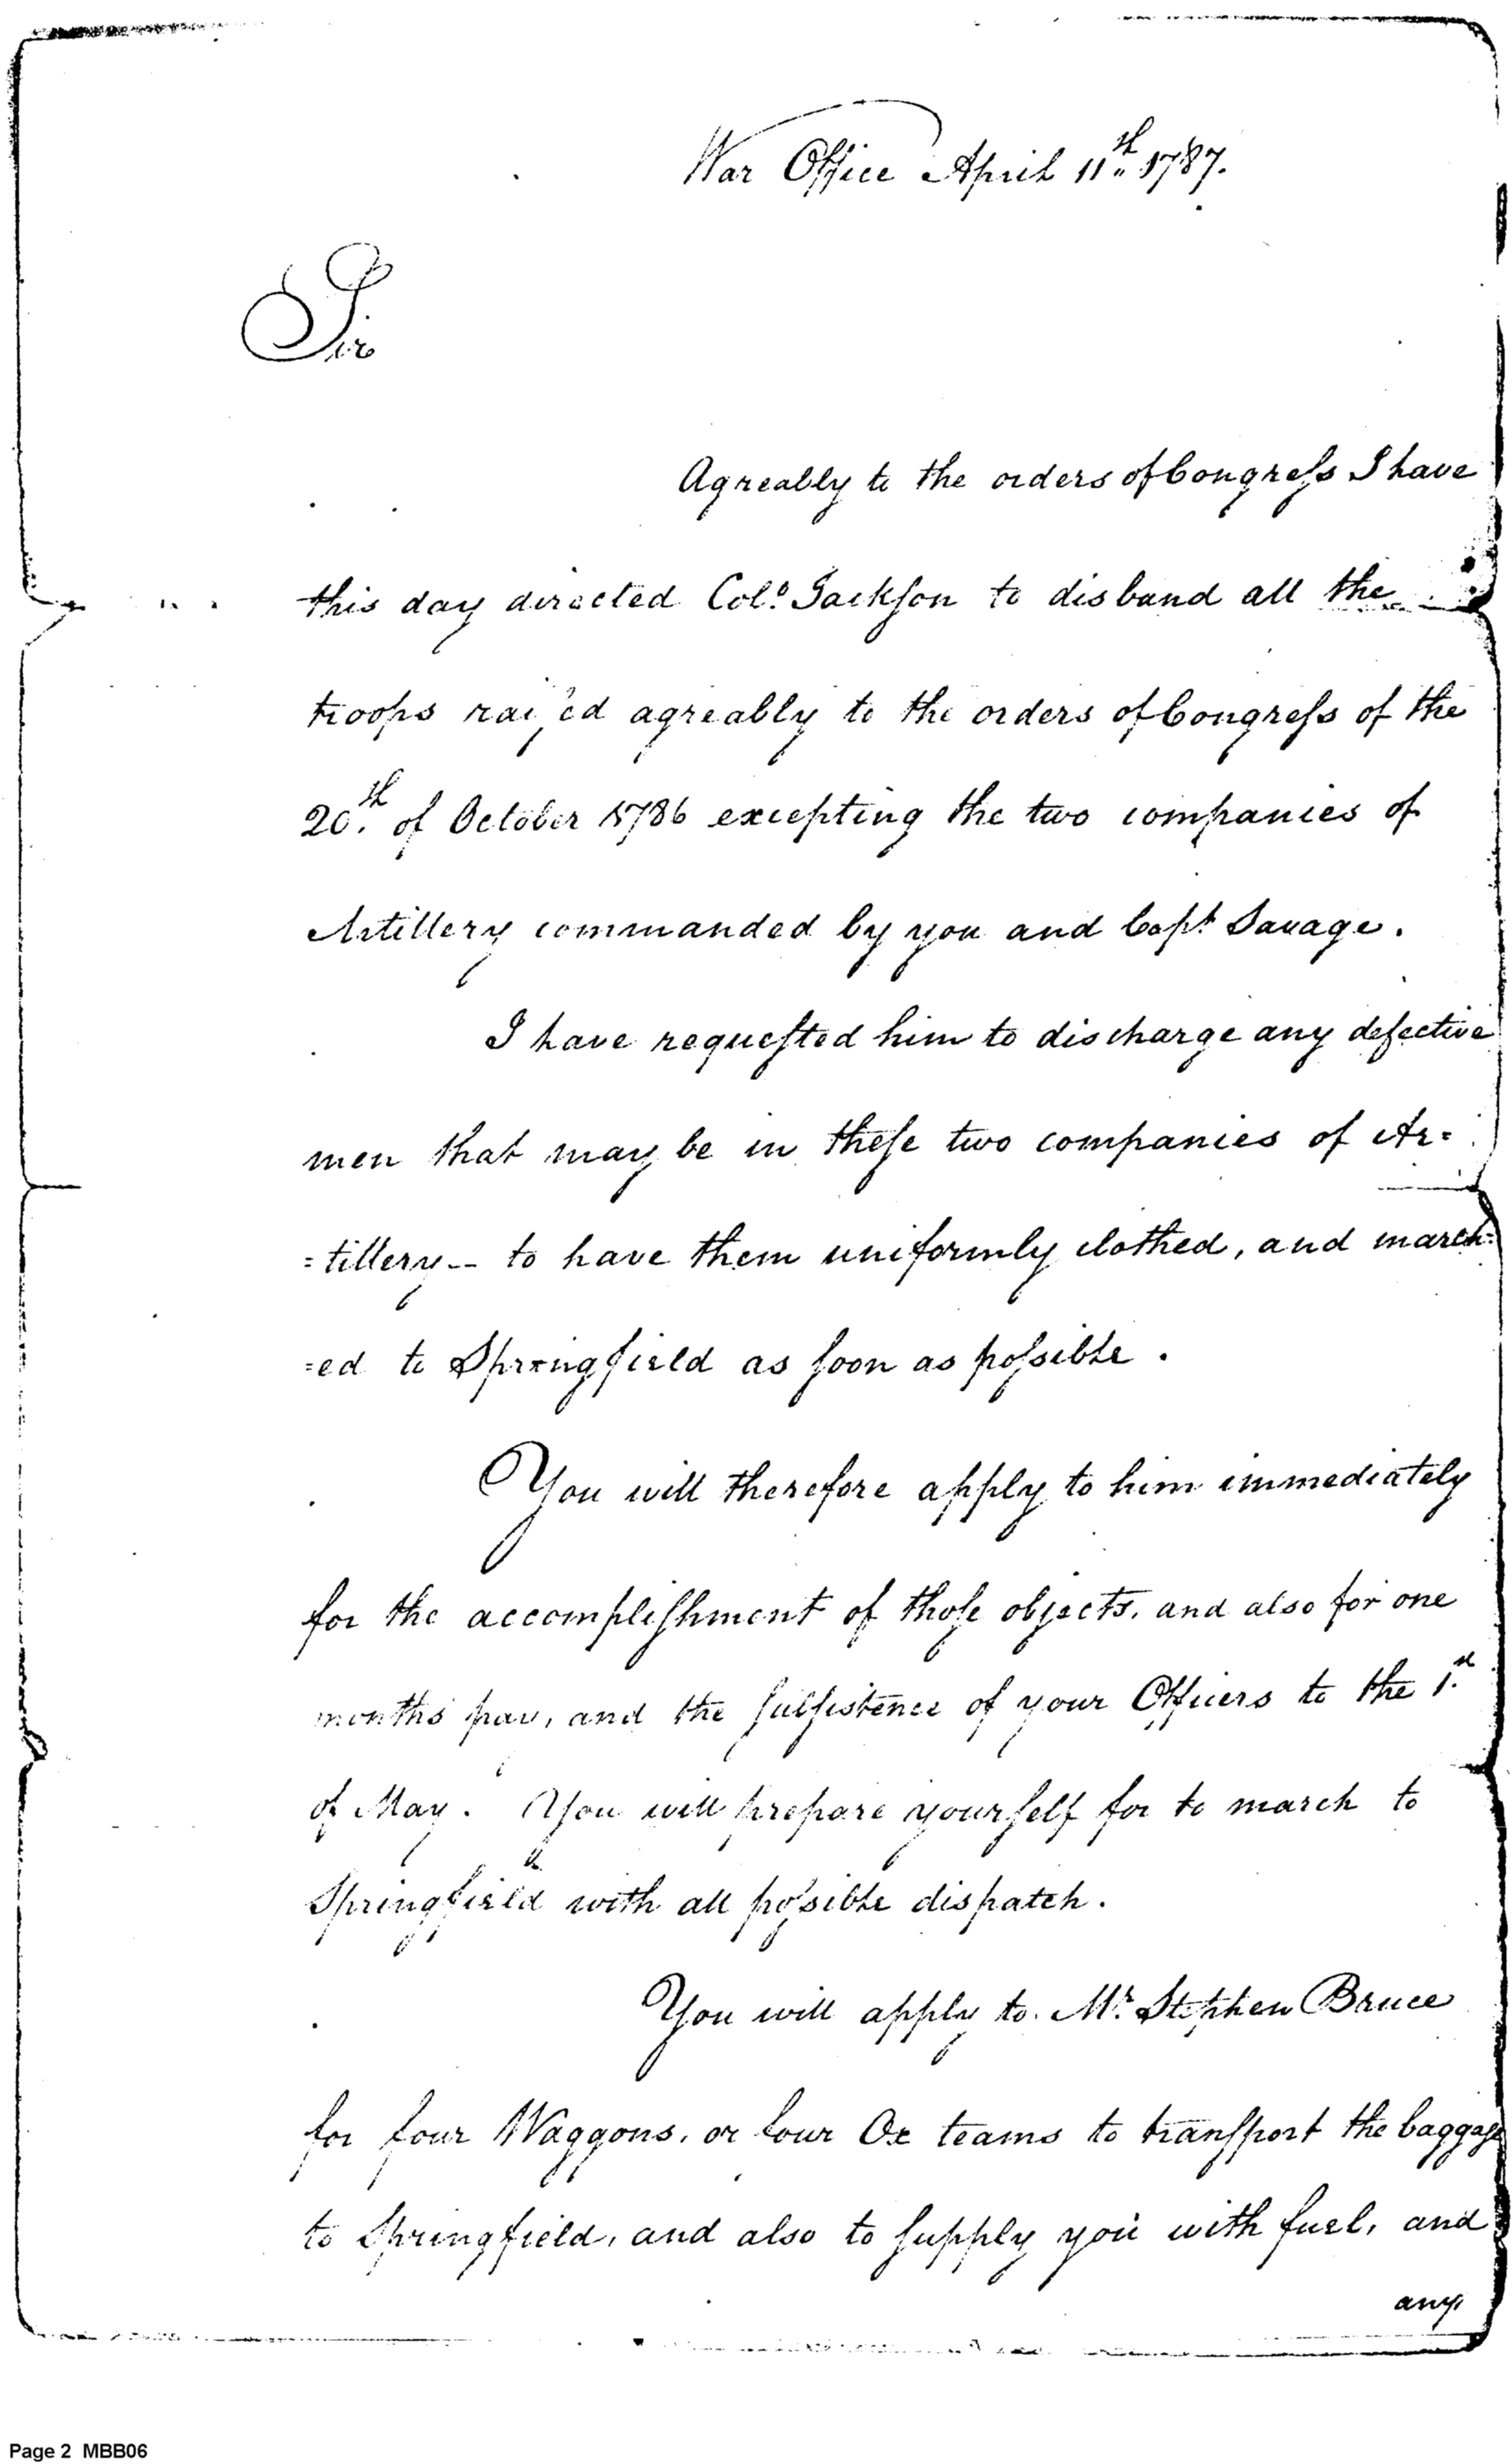 War Office April 11th 1787.
Sir
Agreably to the orders of Congress I have
this day directed Colo. Jackson to disband all the
troops raised agreably to the orders of Congress of the
20th. of October 1786 excepting the two companies of
Artillery commanded by you and Capt Savage.
I have requested him to discharge any defective
men that may be in these two companies of Ar=
=tillery -- to have them uniformly clothed, and march=
=ed to Springfield as soon as possible.
You will therefore apply to him immediately
for the accomplishment of those objects, and also for one
months pay, and the subsistence of your Officers to the 1.st
of May. You will prepare yourself for to march to
Springfield with all possible dispatch.
You will apply to Mr. Stephen Bruce
for four Waggons, or four Ox teams to transport the baggage
to Springfield, and also to supply you with fuel, and
any
Page 2 MBB06